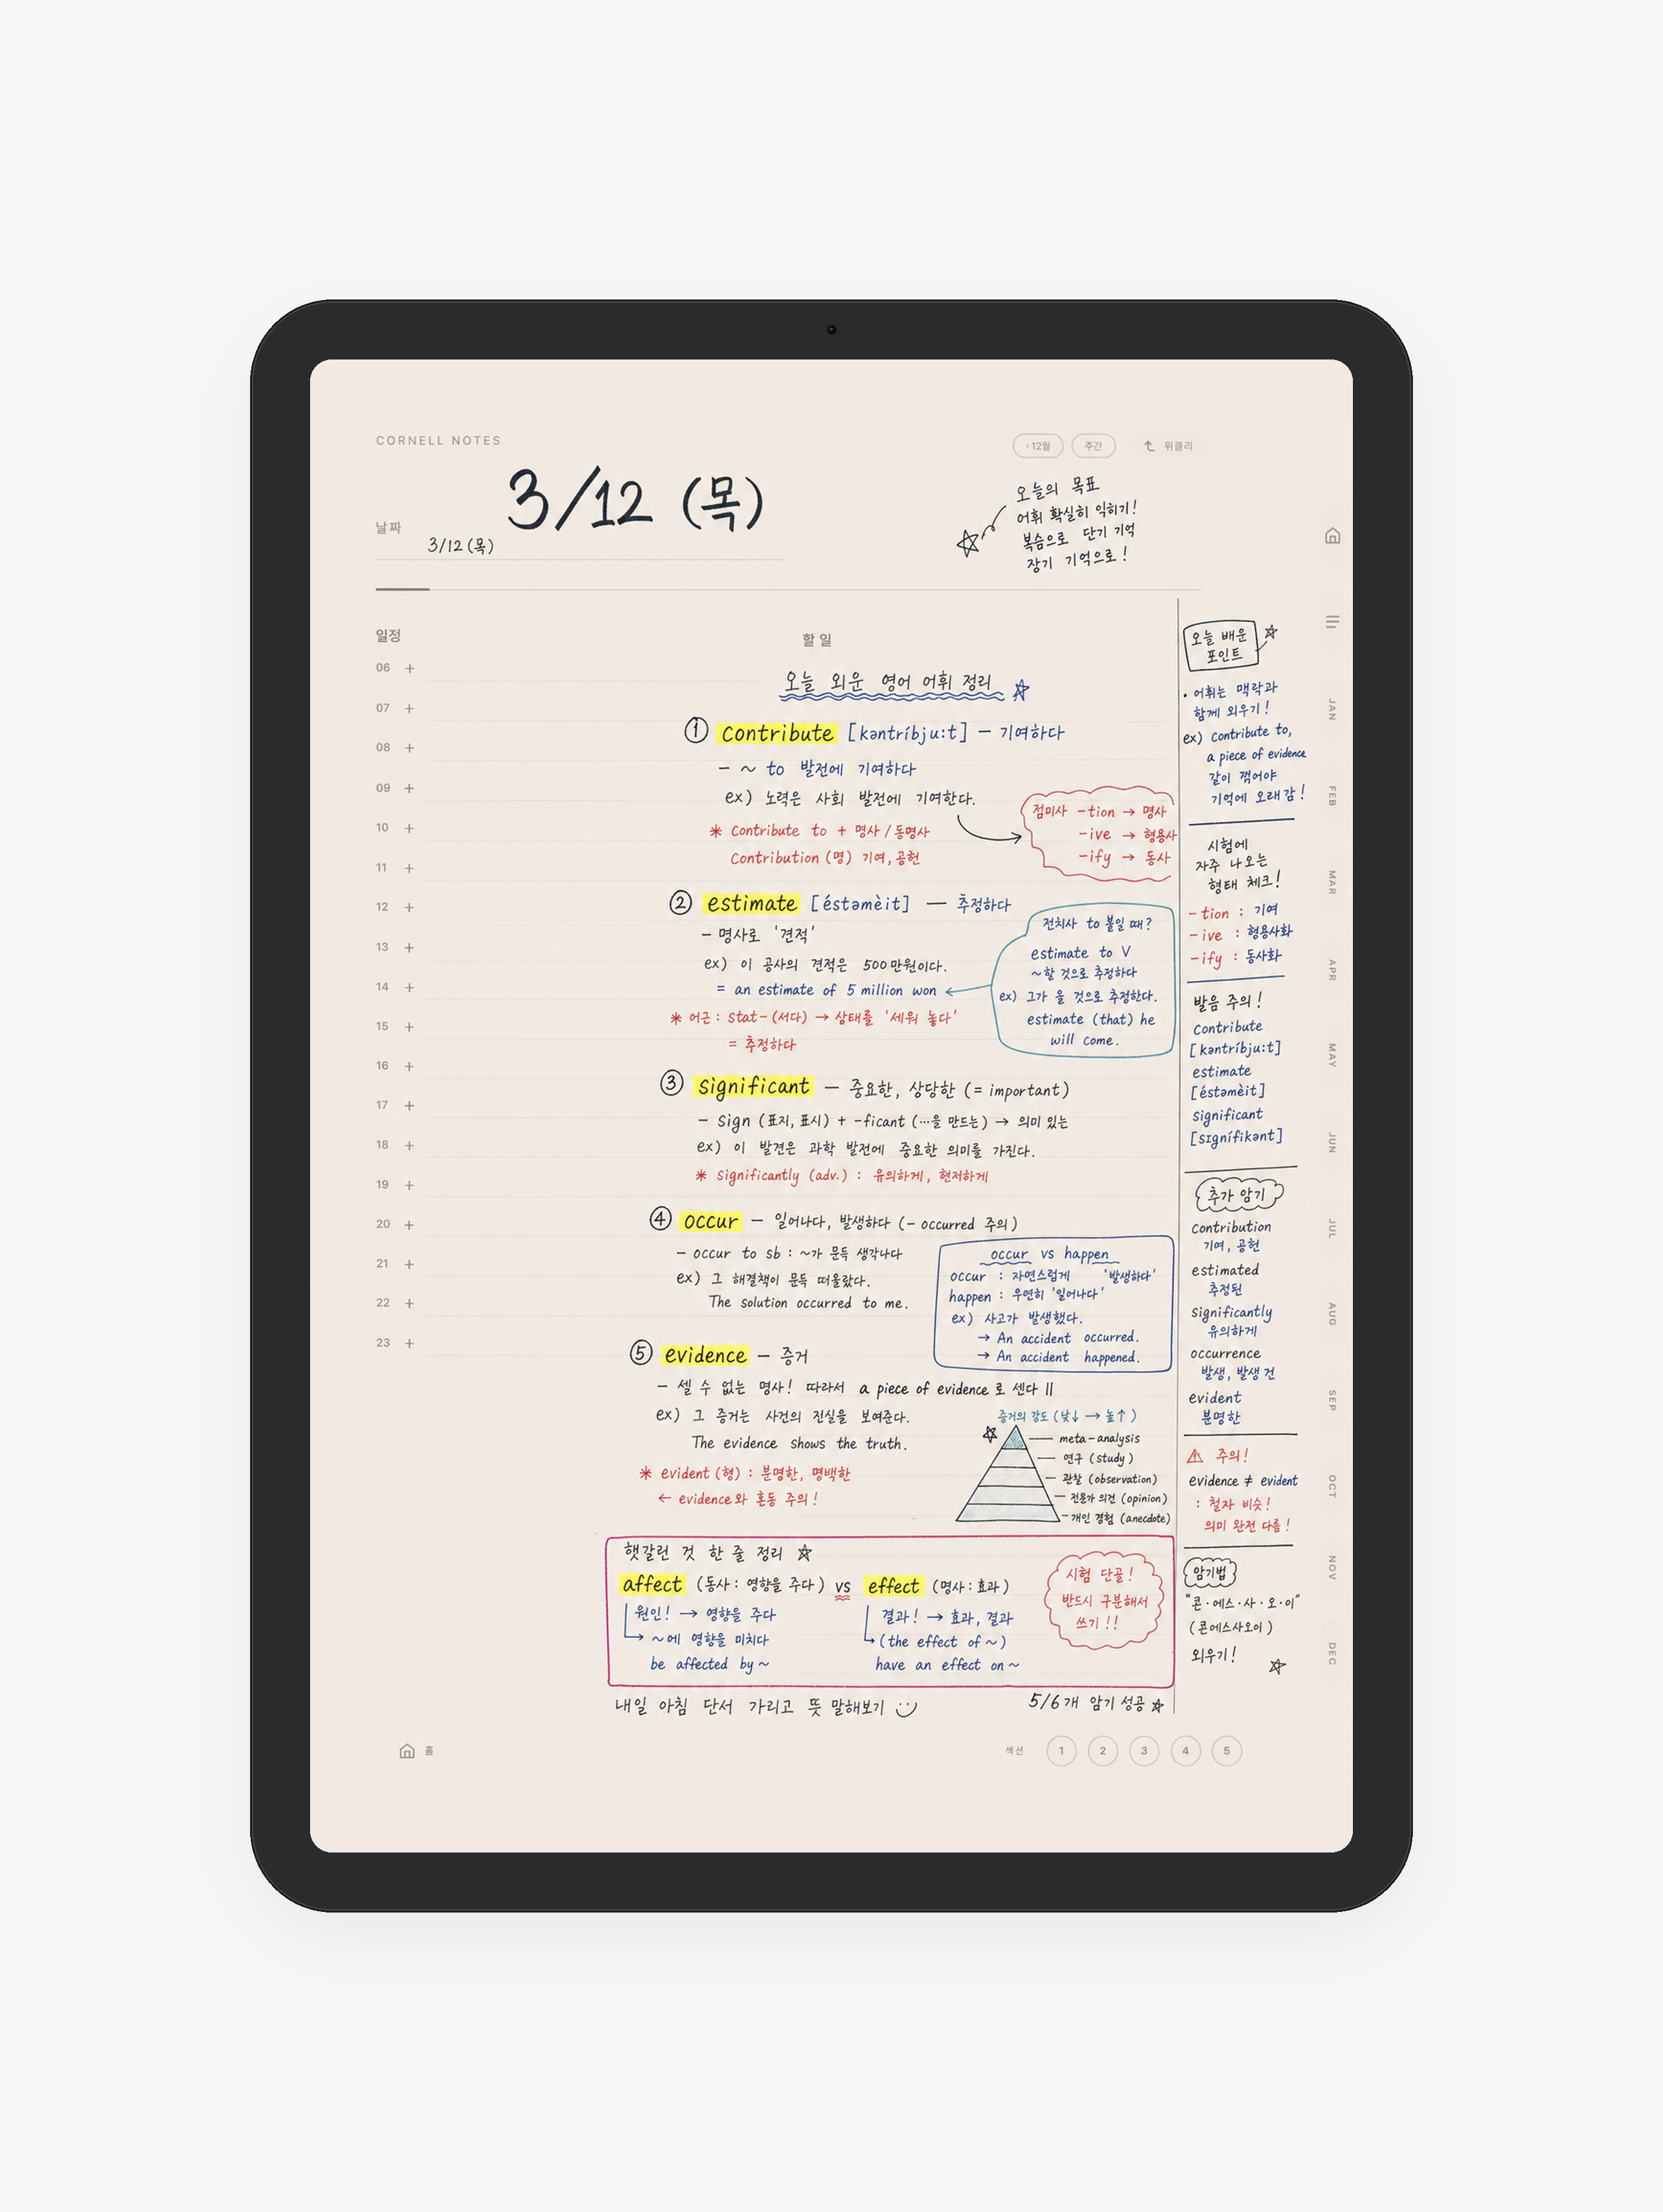 CORNELL NOTES
12월
주간
위클리
날짜
3/12 (목)
3/12 (목)
오늘의 목표
어휘 확실히 익히기!
복습으로 단기 기억
장기 기억으로!
일정
06 +
07 +
08 +
09 +
10 +
11 +
12 +
13 +
14 +
15 +
16 +
17 +
18 +
19 +
20 +
21 +
22 +
23 +
할 일
오늘 외운 영어 어휘 정리 ☆
① Contribute [kəntríbju:t] — 기여하다
- ~ to 발전에 기여하다
ex) 노력은 사회 발전에 기여한다.
* Contribute to + 명사 / 동명사
Contribution (명) 기여, 공헌
접미사 -tion → 명사
-ive → 형용사
-ify → 동사
② estimate [éstəmèit] — 추정하다
- 명사로 '견적'
ex) 이 공사의 견적은 500만원이다.
= an estimate of 5 million won
* 어근: stat- (서다) → 상태를 '세워 놓다'
= 추정하다
전치사 to 붙일 때?
estimate to V
~할 것으로 추정하다
ex) 그가 올 것으로 추정한다.
estimate (that) he
will come.
③ significant — 중요한, 상당한 (= important)
- Sign (표지, 표시) + -ficant (…을 만드는) → 의미 있는
ex) 이 발견은 과학 발전에 중요한 의미를 가진다.
* significantly (adv.) : 유의하게, 현저하게
④ occur — 일어나다, 발생하다 (- occurred 주의)
- occur to sb : ~가 문득 생각나다
ex) 그 해결책이 문득 떠올랐다.
The solution occurred to me.
occur vs happen
occur : 자연스럽게 '발생하다'
happen : 우연히 '일어나다'
ex) 사고가 발생했다.
→ An accident occurred.
→ An accident happened.
⑤ evidence — 증거
- 셀 수 없는 명사! 따라서 a piece of evidence 로 센다 !!
ex) 그 증거는 사건의 진실을 보여준다.
The evidence shows the truth.
* evident (형) : 분명한, 명백한
← evidence와 혼동 주의!
증거의 강도 (낮↓ → 높↑)
meta-analysis
연구 (study)
관찰 (observation)
전문가 의견 (opinion)
개인 경험 (anecdote)
햇갈런 것 한 줄 정리 ☆
affect (동사: 영향을 주다) vs effect (명사: 효과)
원인! → 영향을 주다
→ ~에 영향을 미치다
be affected by ~
결과! → 효과, 결과
(the effect of ~)
have an effect on ~
시험 단골!
반드시 구분해서
쓰기!!
내일 아침 단서 가리고 뜻 말해보기
5/6개 암기 성공 ☆
오늘 배운
포인트
• 어휘는 맥락과
함께 외우기!
ex) Contribute to,
a piece of evidence
같이 엮어야
기억에 오래감!
시험에
자주 나오는
형태 체크!
-tion : 기여
-ive : 형용사화
-ify : 동사화
발음 주의!
Contribute
[kəntríbju:t]
estimate
[éstəmèit]
significant
[sɪgnífikənt]
추가 암기
contribution
기여, 공헌
estimated
추정된
significantly
유의하게
occurrence
발생, 발생 건
evident
분명한
⚠ 주의!
evidence ≠ evident
: 철자 비슷!
의미 완전 다름!
암기법
"콘·에스·사·오·이"
(콘에스사오이)
외우기!
JAN
FEB
MAR
APR
MAY
JUN
JUL
AUG
SEP
OCT
NOV
DEC
홈
섹션 1 2 3 4 5